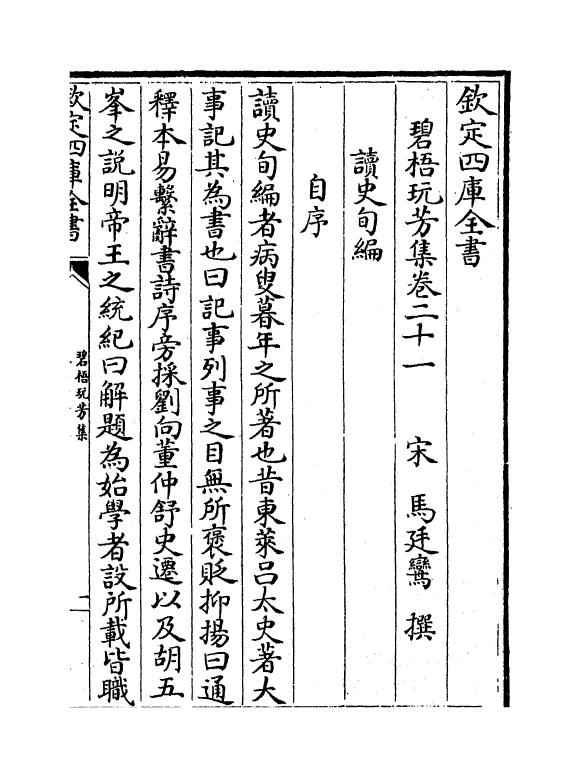 欽定四庫全書
碧梧玩芳集卷二十一　宋　馬廷鸞　撰
讀史旬編
自序
讀史旬編者病叟暮年之所著也昔東萊吕太史著大
事記其為書也曰記事列事之目無所褒貶抑揚曰通
釋本易繫辭書詩序旁採劉向董仲舒史遷以及胡五
峯之説明帝王之統紀曰解題為始學者設所載皆職
欽定四庫全書
碧梧玩芳集
一